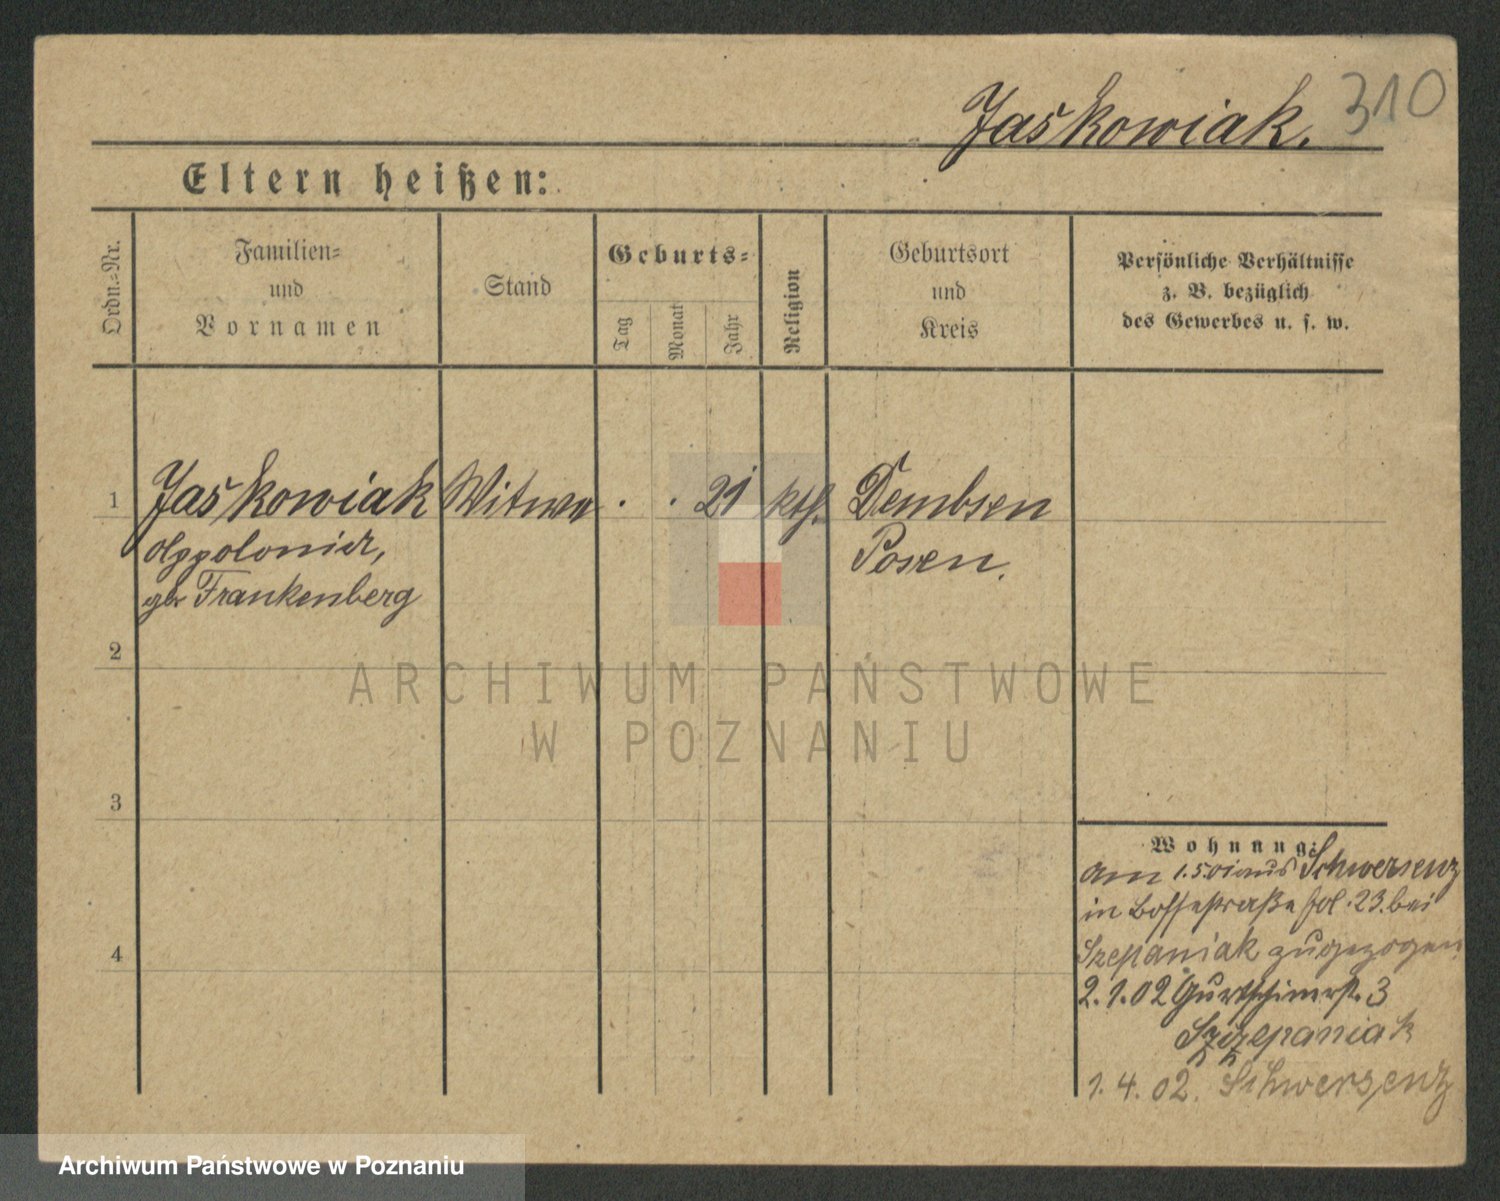 Jaskowiak. 310
Eltern heißen:
Ordn.=Nr.
Familien=
und
Vornamen
Stand
Geburts=
Tag
Monat
Jahr
Religion
Geburtsort
und
Kreis
Persönliche Verhältnisse
z. B. bezüglich
des Gewerbes u. s. w.
1 Jaskowiak Witwe . . 21 kth. Dembsen
Appolonia, Posen.
geb Frankenberg
2
3
4
Wohnung:
am 1.5.01 aus Schwersenz
in Bossestraße fol. 23. bei
Szepaniak zugezogen
2.1.02 Gurtschinerst. 3
Szczepaniak
1.4.02. Schwersenz
ARCHIWUM PAŃSTWOWE
W POZNANIU
Archiwum Państwowe w Poznaniu